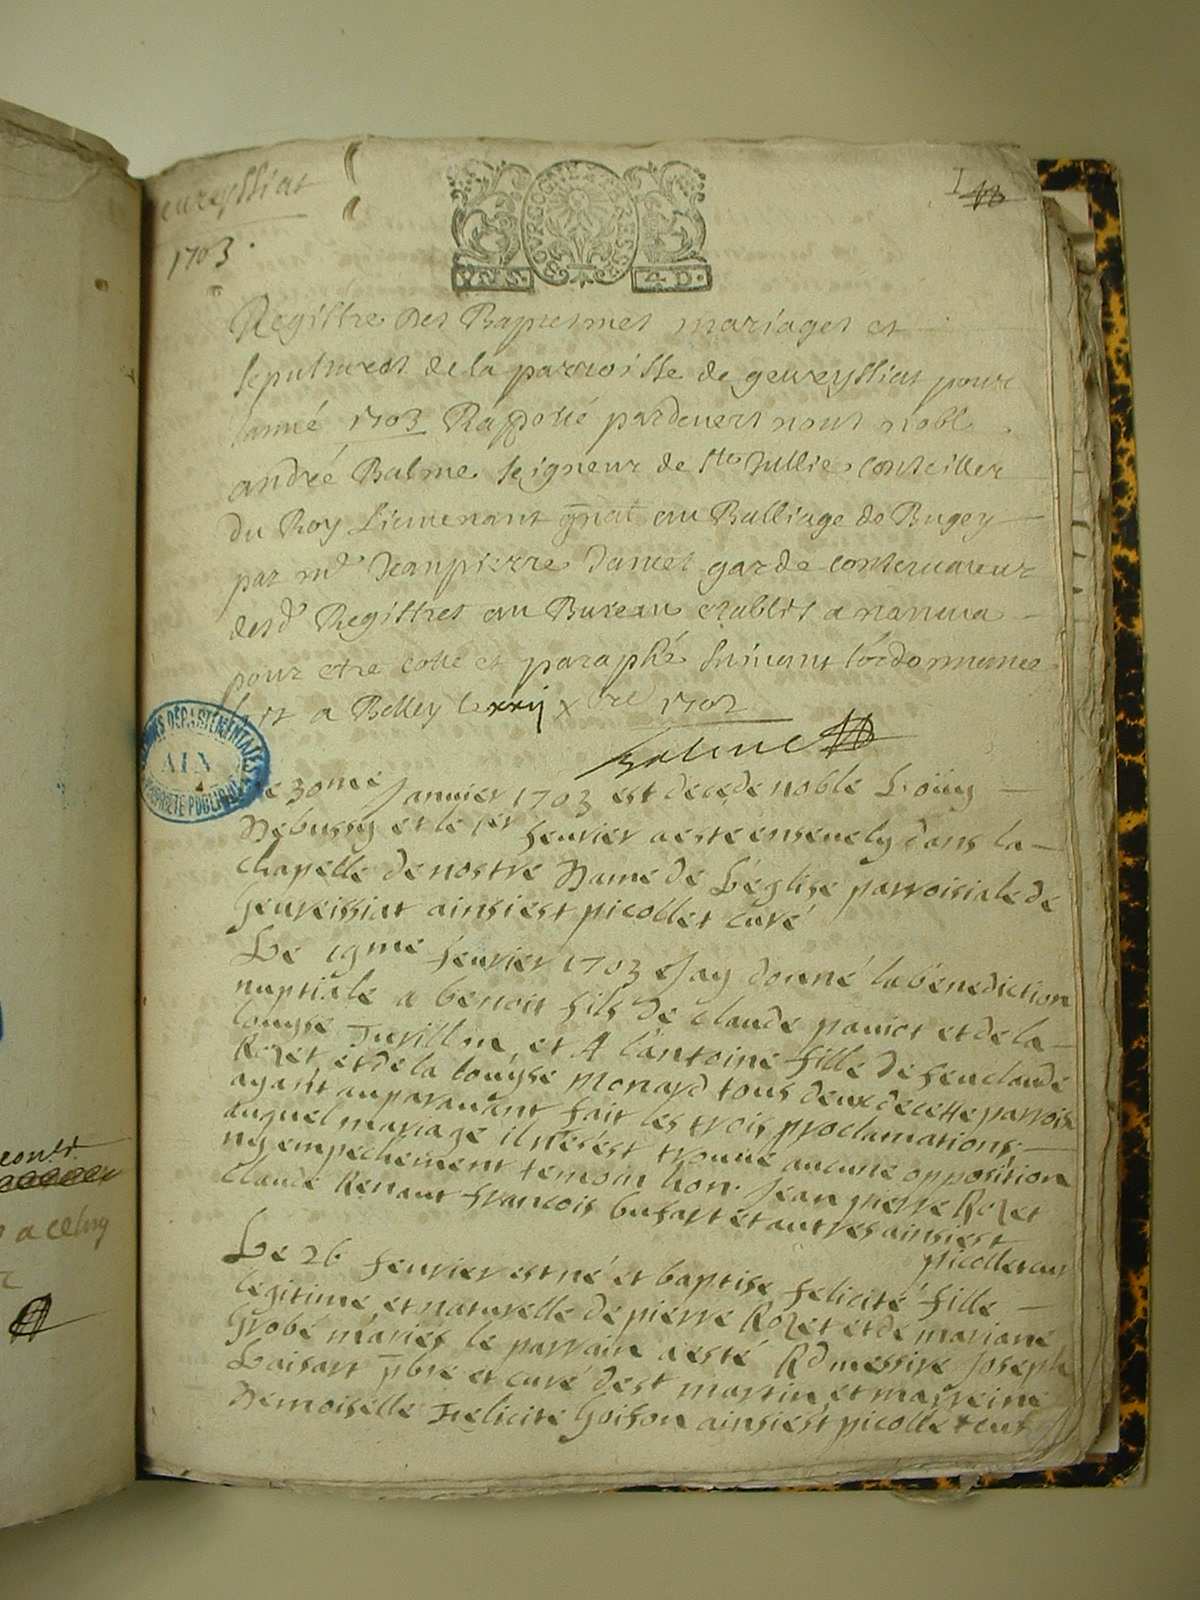 geureyssiat
1703.
I
BOURGOGNE BRESSE
4 D.
Registre des Baptesmes mariages et
sepultures de la parroisse de geureyssiat pour
lanné 1703 Rapporté pardevers nous nobl
andré Balme seigneur de Ste Jullie conseiller
du Roy Lieutenant gnal au Balliage de Bugey
par md Jeanpierre garde conservateur
desd Registres au Bureau establis a nantua
pour etre cotte et paraphé suivant lordonnance
fait a Belley le xxij xbre 1702
Balme
ARCHIVES DÉPARTEMENTALES
AIN
PROPRIÉTÉ PUBLIQUE
Le 30me Janvier 1703 est decede noble Loüis
Debussy et le 1er feurier a este ensevely dans la
chapelle de nostre Dame de L'église parroisiale de
Geureissiat ainsi est picollet curé
Le 19me feurier 1703 Jay donné la bénediction
nuptiale a benoit fils de claude paviot et de la
louyse Juvillon, et A lantoine fille de feu claude
Rozet et de la louyse Monard tous deux de cette parrois
ayant auparauant fait les trois proclamations
auquel mariage il ne sest trouue aucune opposition
ny empechement temoin hon. Jean pierre Rozet
Claude Renaut francois busart et autres ainsi est
picollet cur
Le 26 feurier est né et baptise felicité fille
legitime et naturelle de pierre Rozet et de mariane
Grobé mariés le parrain a esté Rd messire Joseph
Laisart pbre et curé de st martin et marreine
Demoiselle Felicité Goison ainsi est picollet cur